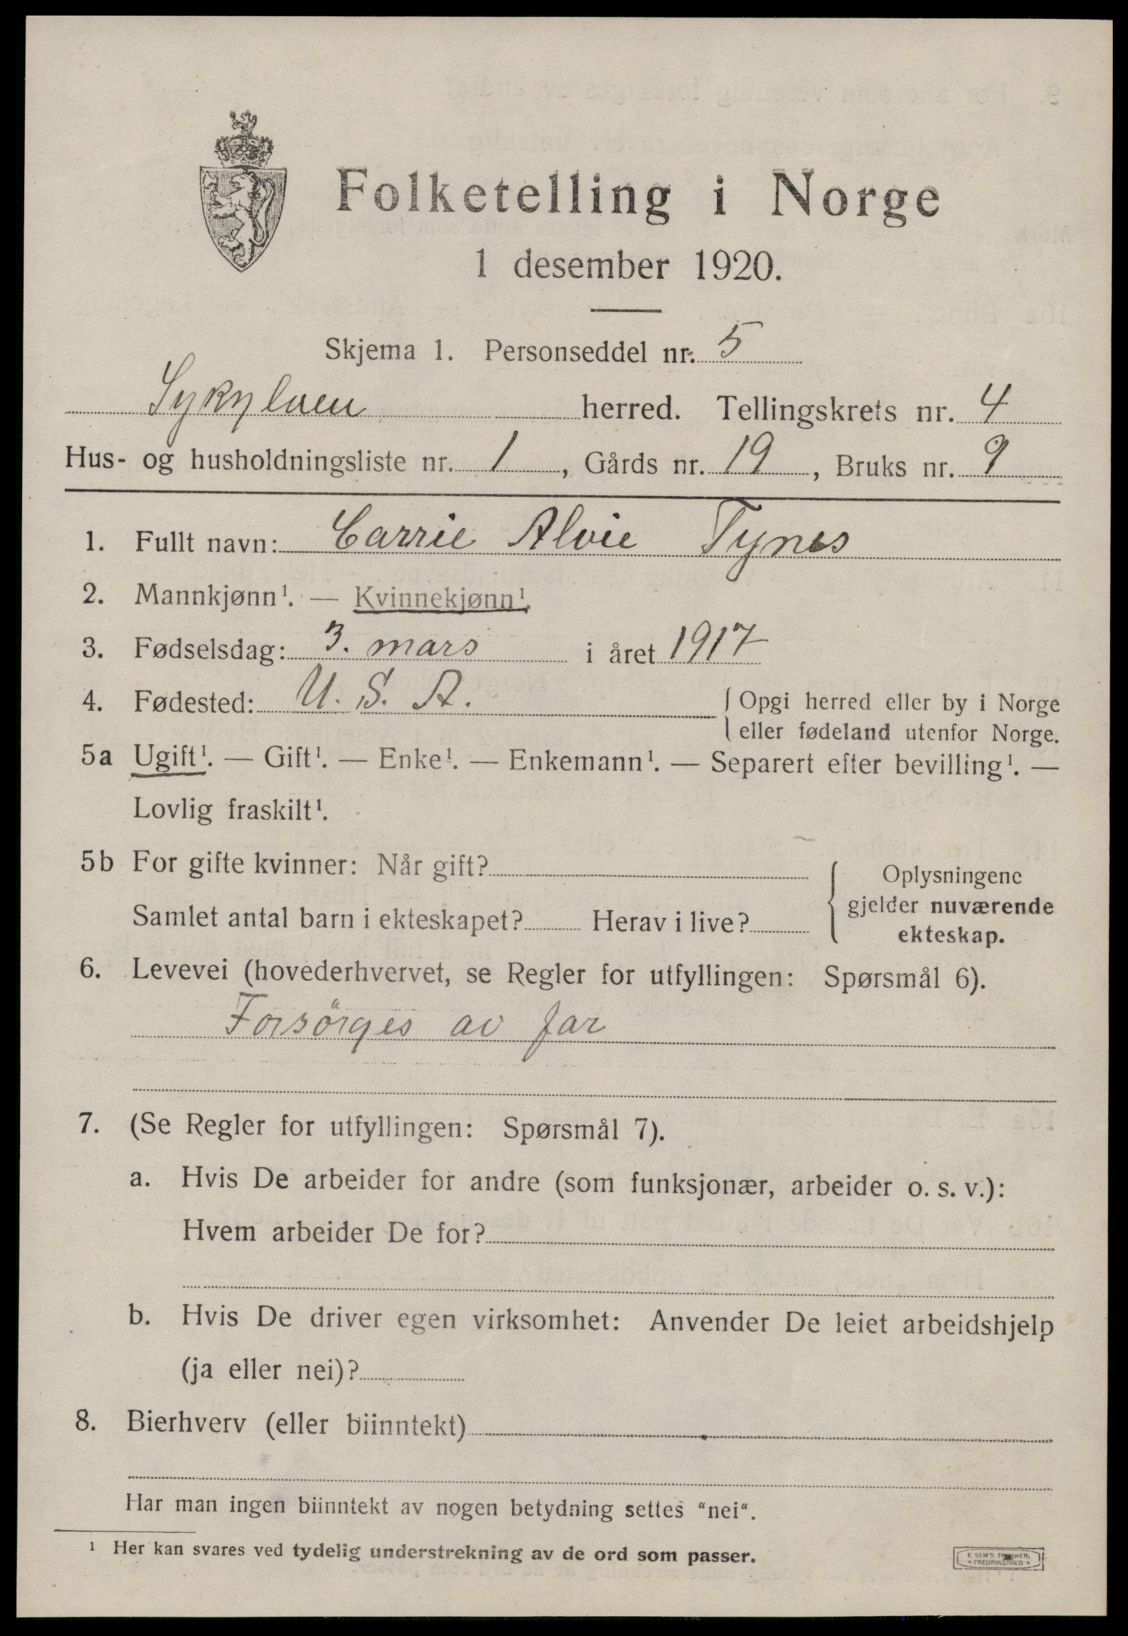 Folketelling i Norge
1 desember 1920.
Skjema 1. Personseddel nr. 5
Sykylven herred. Tellingskrets nr. 4
Hus- og husholdningsliste nr. 1, Gårds nr. 19, Bruks nr. 9
1. Fullt navn: Carrie Alvie Tynes
2. Mannkjønn¹. — Kvinnekjønn¹.
3. Fødselsdag: 3. mars i året 1917
4. Fødested: U. S. A. { Opgi herred eller by i Norge
eller fødeland utenfor Norge.
5a Ugift¹. — Gift¹. — Enke¹. — Enkemann¹. — Separert efter bevilling¹. —
Lovlig fraskilt¹.
5b For gifte kvinner: Når gift?
Samlet antal barn i ekteskapet? Herav i live?
{ Oplysningene
gjelder nuværende
ekteskap.
6. Levevei (hovederhvervet, se Regler for utfyllingen: Spørsmål 6).
Forsørges av far
7. (Se Regler for utfyllingen: Spørsmål 7).
a. Hvis De arbeider for andre (som funksjonær, arbeider o. s. v.):
Hvem arbeider De for?
b. Hvis De driver egen virksomhet: Anvender De leiet arbeidshjelp
(ja eller nei)?
8. Bierhverv (eller biinntekt)
Har man ingen biinntekt av nogen betydning settes "nei".
¹ Her kan svares ved tydelig understrekning av de ord som passer.